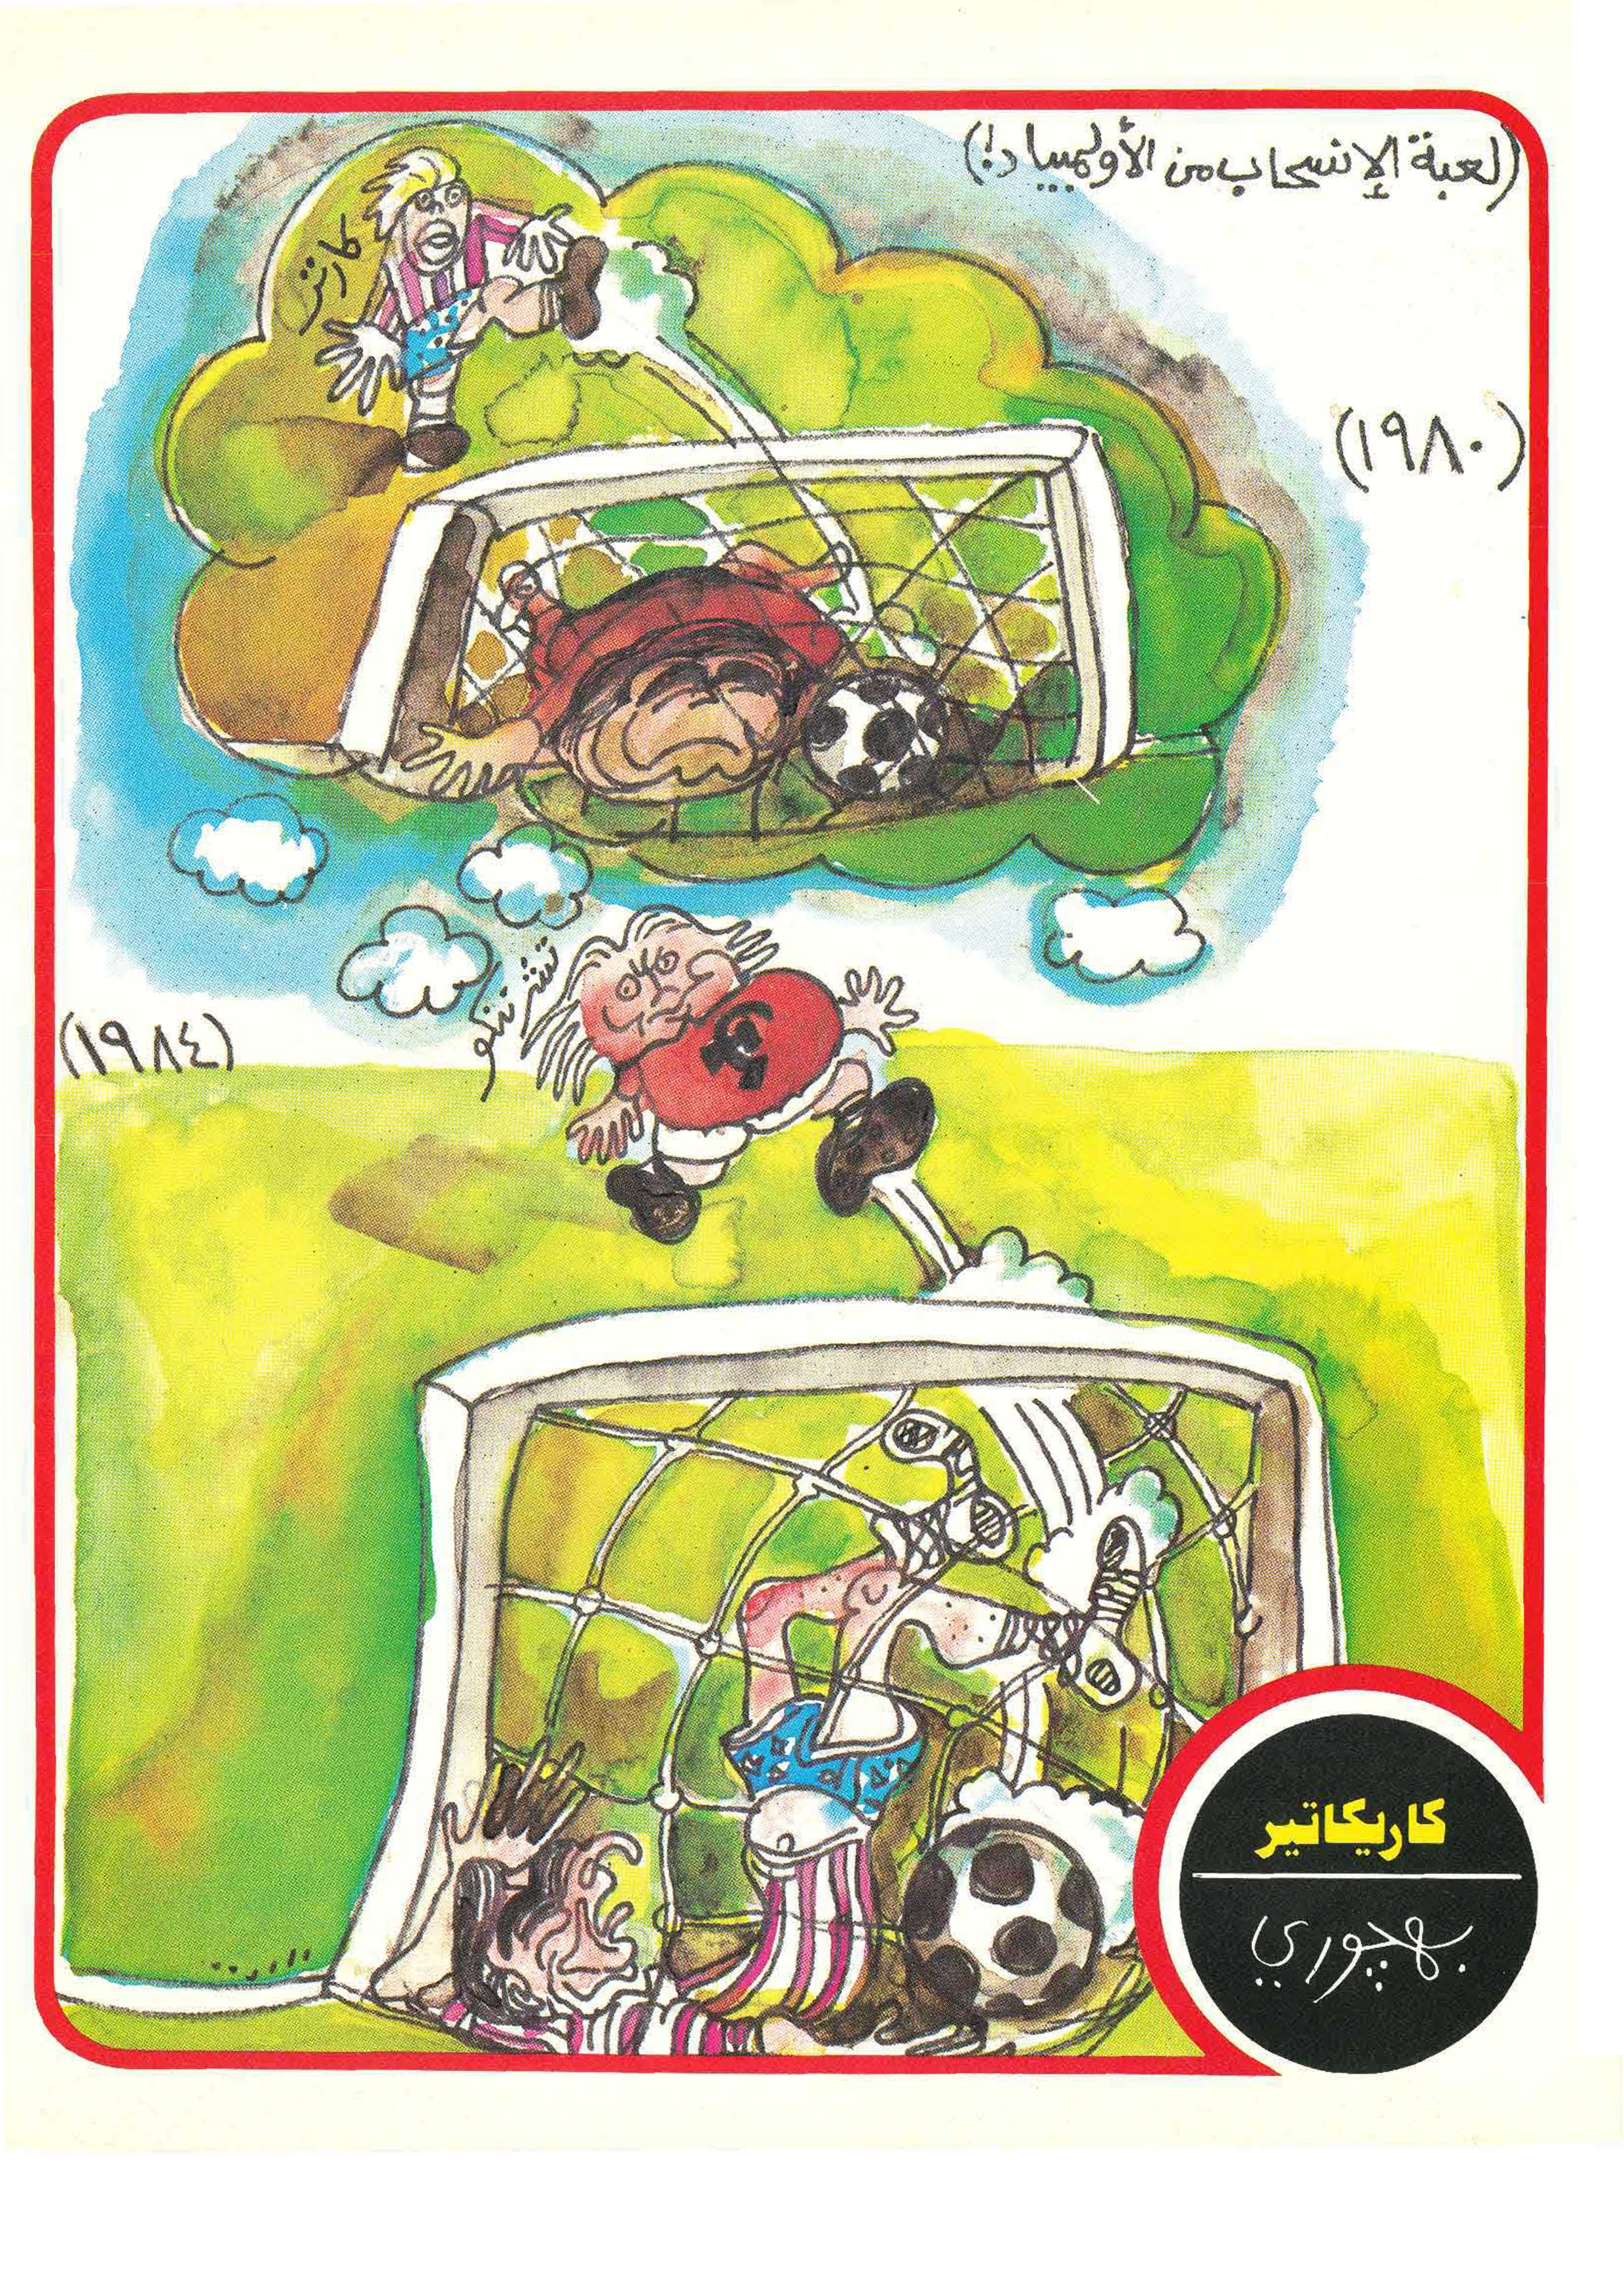 (لعبة الإنسحاب من الأولمبياد!)
كارتر
(١٩٨٠)
تشرننكو
(١٩٨٤)
كاريكاتير
بهجوري